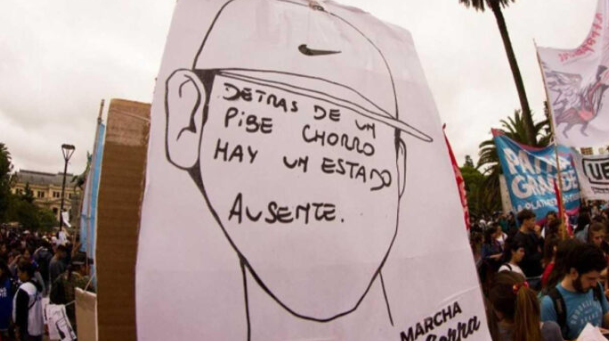 DETRAS DE UN
PIBE CHORRO
HAY UN ESTADO
AUSENTE.
MARCHA
GRANDE